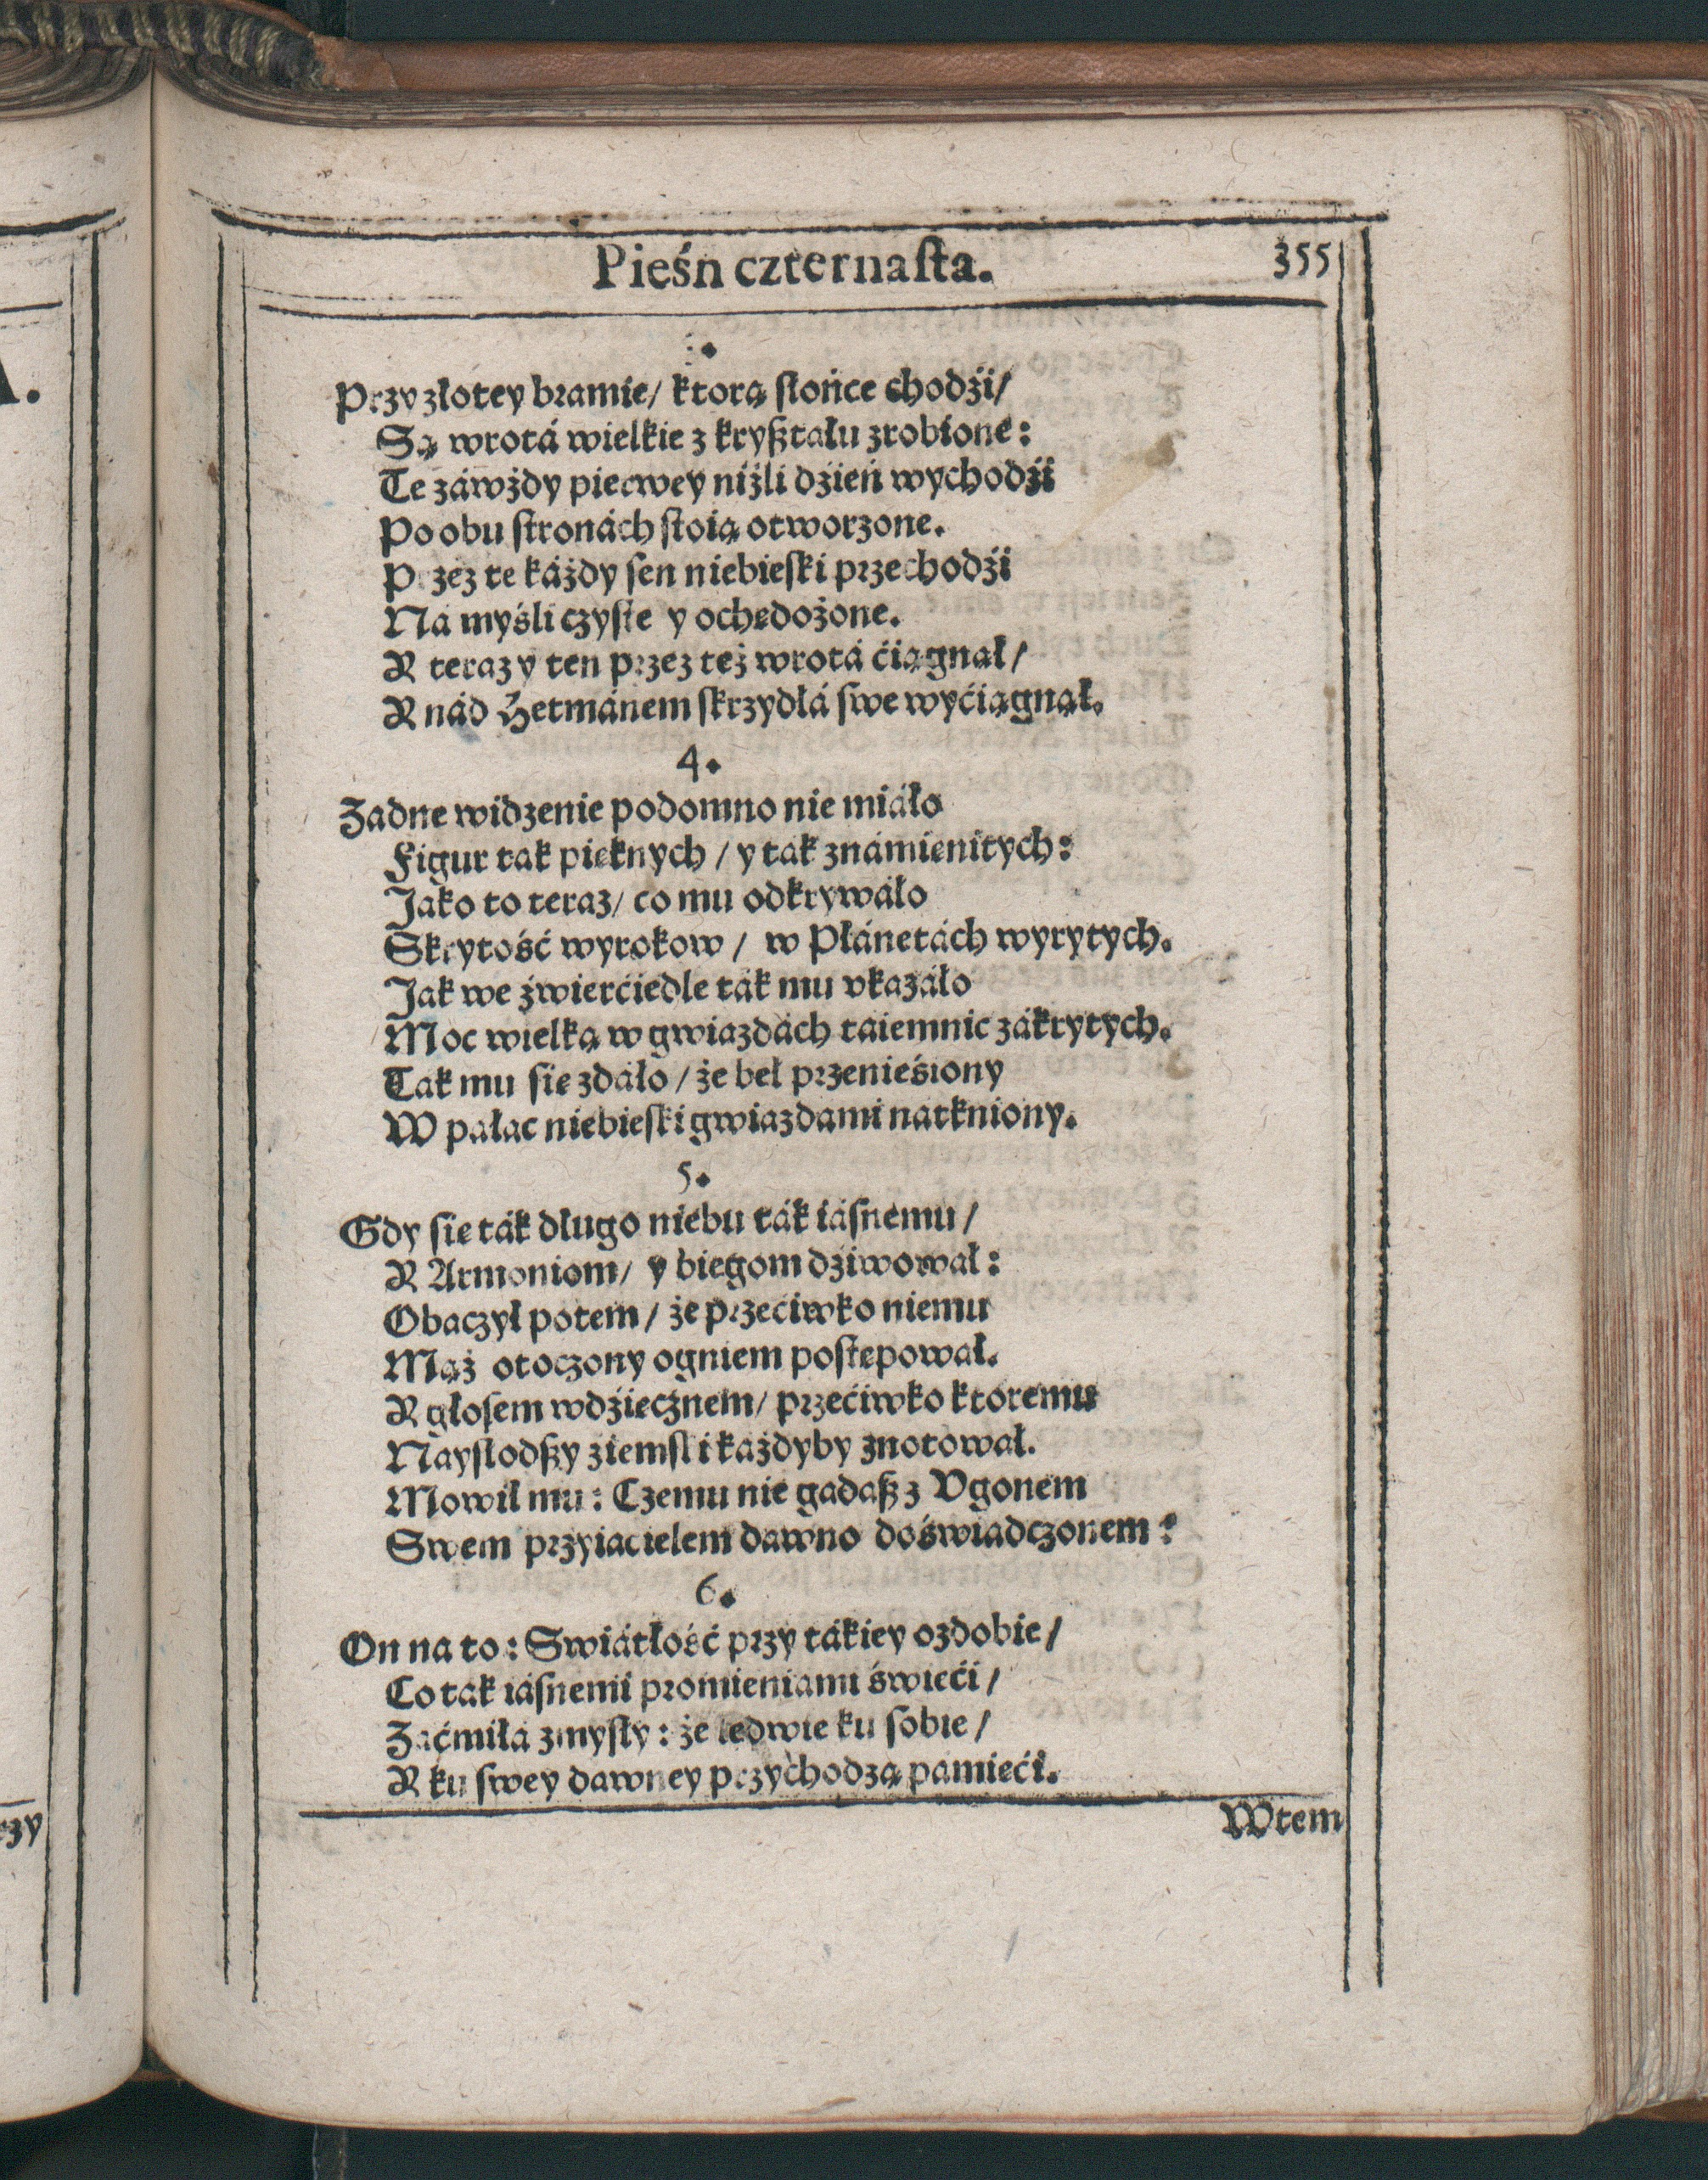 Pieśń czternaſta. 355
3.
Przy złotey bramie/ ktorą ſłońce chodźi/
Są wrotá wielkie z kryſztału zrobione:
Te záwżdy pierwey niżli dźień wychodźi
Po obu ſtronách ſtoią otworzone.
Przez te káżdy ſen niebieſki przechodźi
Ná myśli czyſte y ochędożone.
Y teraz y ten przez też wrotá ćiągnął/
Y nád Hetmánem ſkrzydłá ſwe wyćiągnął.
4.
Żadne widzenie podomno nie miáło
Figur tak pięknych/ y tak známienitych:
Jako to teraz/ co mu odkrywáło
Skrytość wyrokow/ w Płánetách wyrytych.
Jak we źwierćiedle ták mu vkazáło
Moc wielką w gwiazdách taiemnic zákrytych.
Tak mu ſię zdáło/ że beł przenieśiony
W pałac niebieſki gwiazdami natkniony.
5.
Gdy ſię ták długo niebu ták iáſnemu/
Y Armoniom/ y biegom dźiwował:
Obaczył potem/ że przećiwko niemu
Mąż otoczony ogniem poſtępował.
Y głoſem wdźięcznem/ przećiwko ktoremu
Nayſłodſzy ziemſki każdyby znotował.
Mowił mu: Czemu nie gadaſz z Vgonem
Swem przyiacielem dawno doświadczonem?
6.
On na to: Swiátłość przy tákiey ozdobie/
Co tak iáſnemi promieniami świeći/
Záćmiłá zmyſły: że ledwie ku ſobie/
Y ku ſwey dawney przychodzą pamięći.
Wtem
A.
rzy